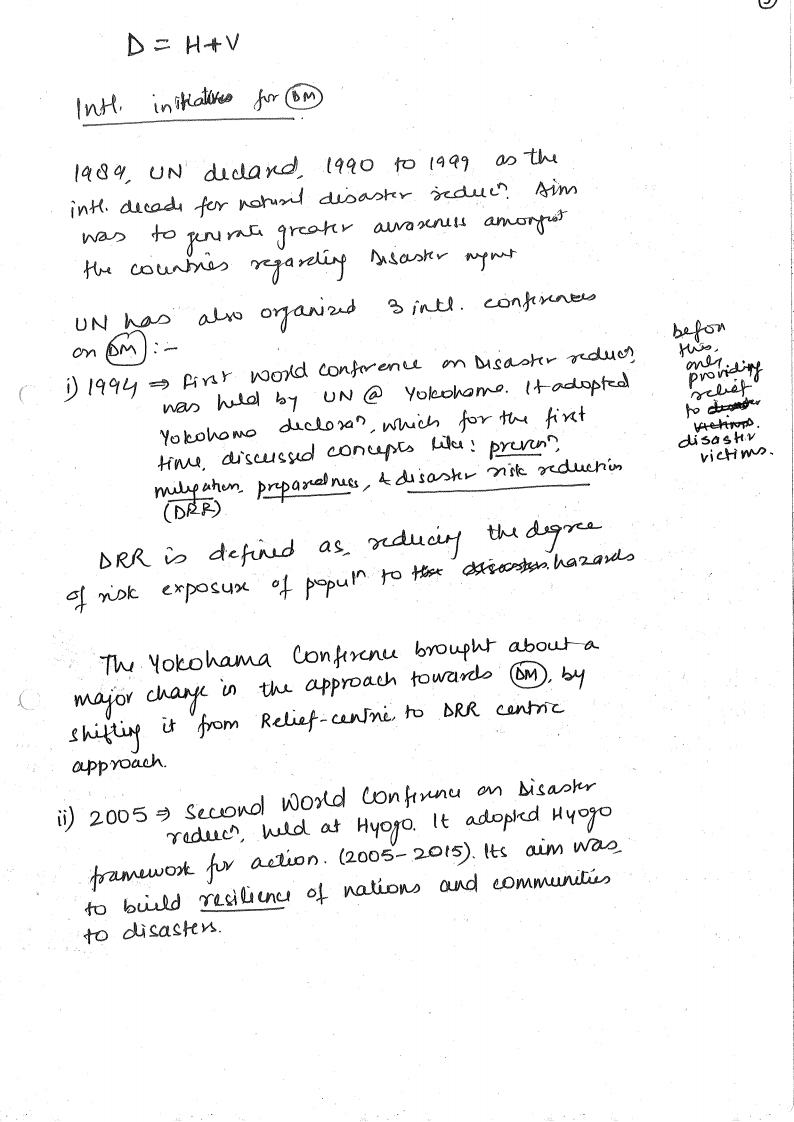 D = H+V
Intl. initiatives for DM
1989, UN declared, 1990 to 1999 as the
intl. decade for natural disaster reducn. Aim
was to generate greater awareness amongst
the countries regarding Disaster mgmt
UN has also organized 3 intl. conferences
on DM :-
i) 1994 ⇒ First World Conference on Disaster reducn
was held by UN @ Yokohama. It adopted
Yokohama declaran, which for the first
time, discussed concepts like: prevenn,
mitigation, preparedness, & disaster risk reduction
(DRR)
before
this,
only
providing
relief
to disaster
victims.
disaster
victims.
DRR is defined as, reducing the degree
of risk exposure of populn to the disasters. hazards
The Yokohama Conference brought about a
major change in the approach towards DM, by
shifting it from Relief-centric, to DRR centric
approach.
ii) 2005 ⇒ Second World Conference on Disaster
reducn, held at Hyogo. It adopted Hyogo
framework for action. (2005-2015). Its aim was,
to build resilience of nations and communities
to disasters.